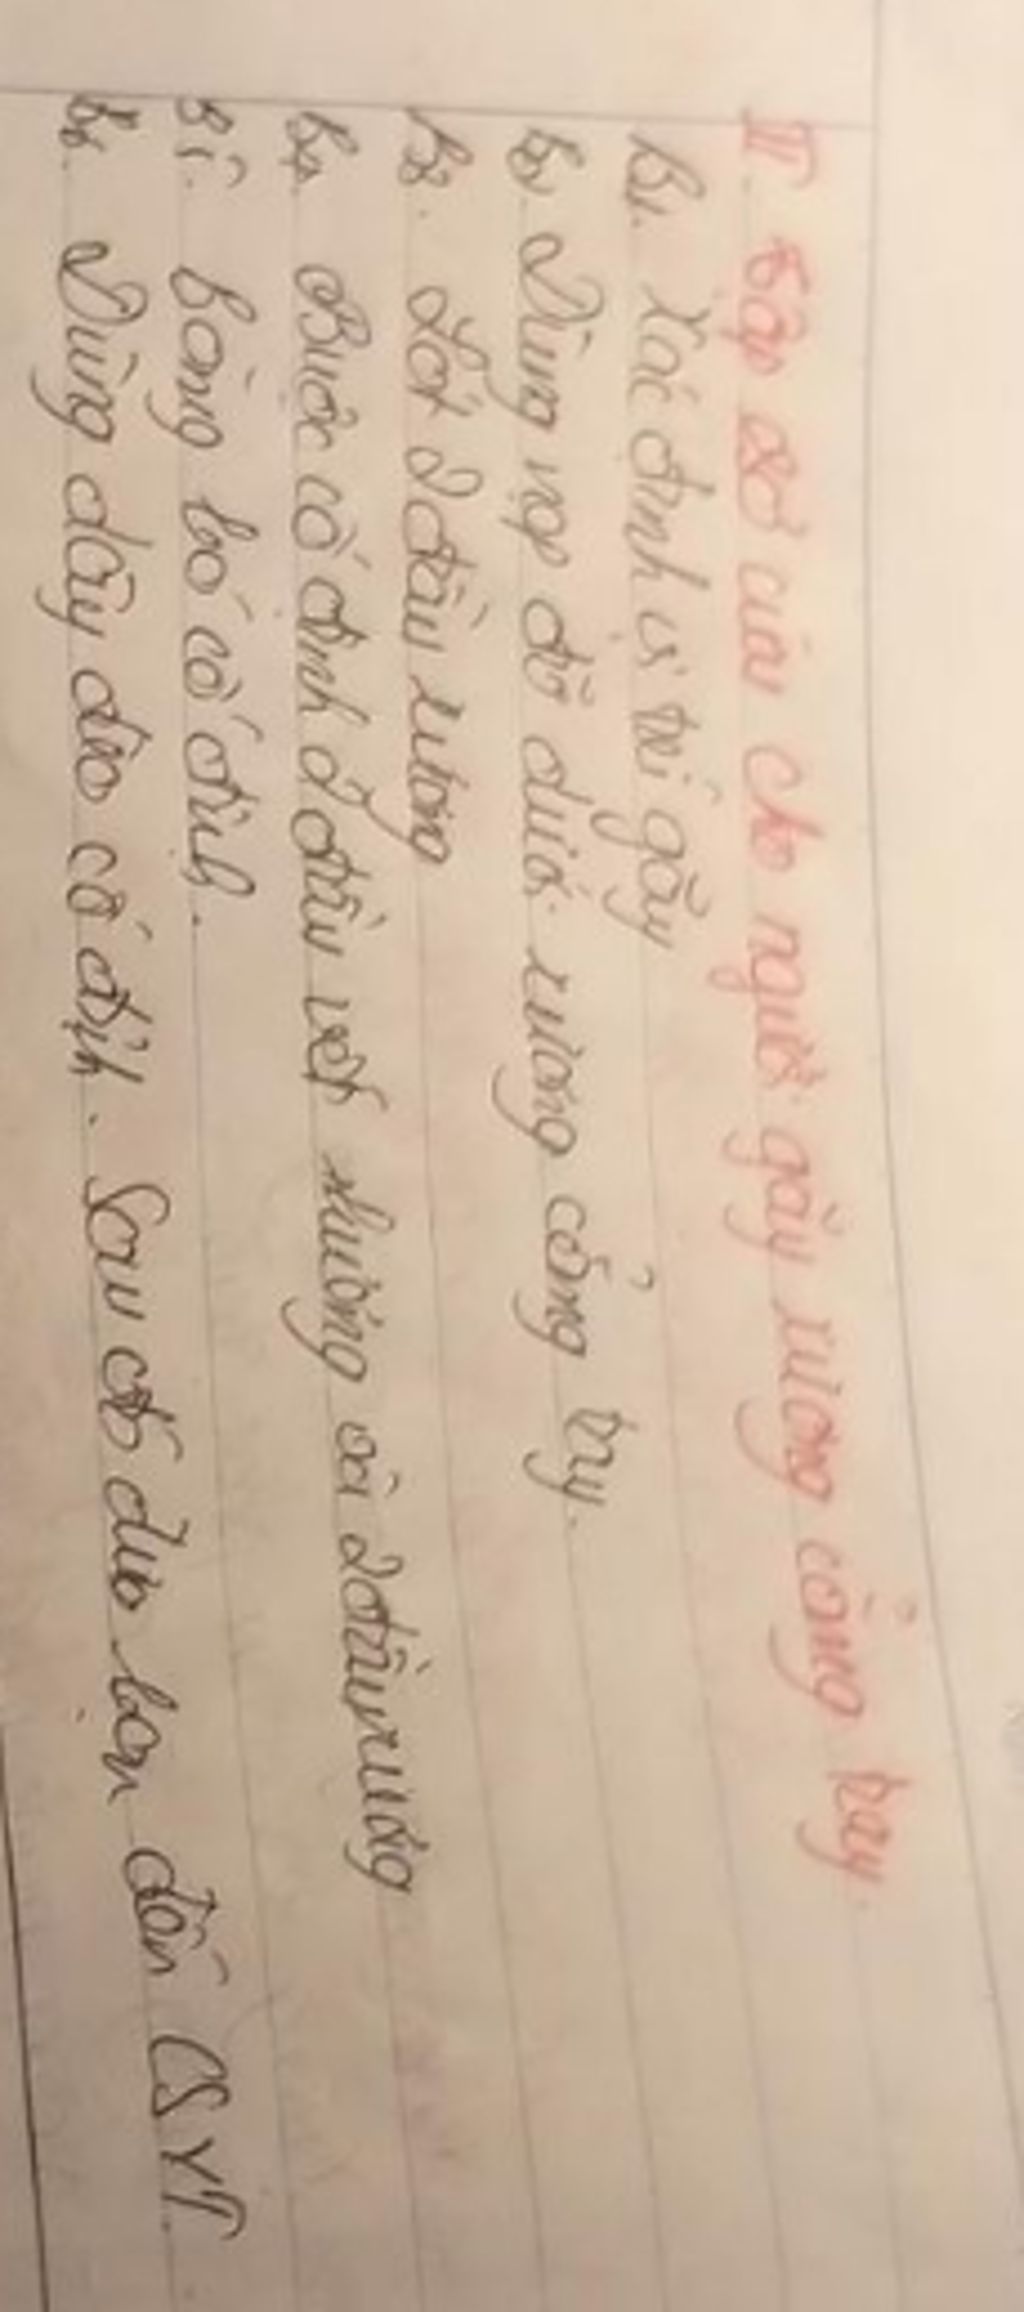 II. Tập sơ cứu cho người gãy xương cẳng tay.
B1. Xác định vị trí gãy
B2. Dùng nẹp đỡ dưới xương cẳng tay.
B3. Lót 2 đầu xương
B4. Buộc cố định 2 đầu vết thương và 2 đầu xương
B5. Băng bó cố định.
B6. Dùng dây đeo cố định. Sau đó đưa bạn đến CSYT.